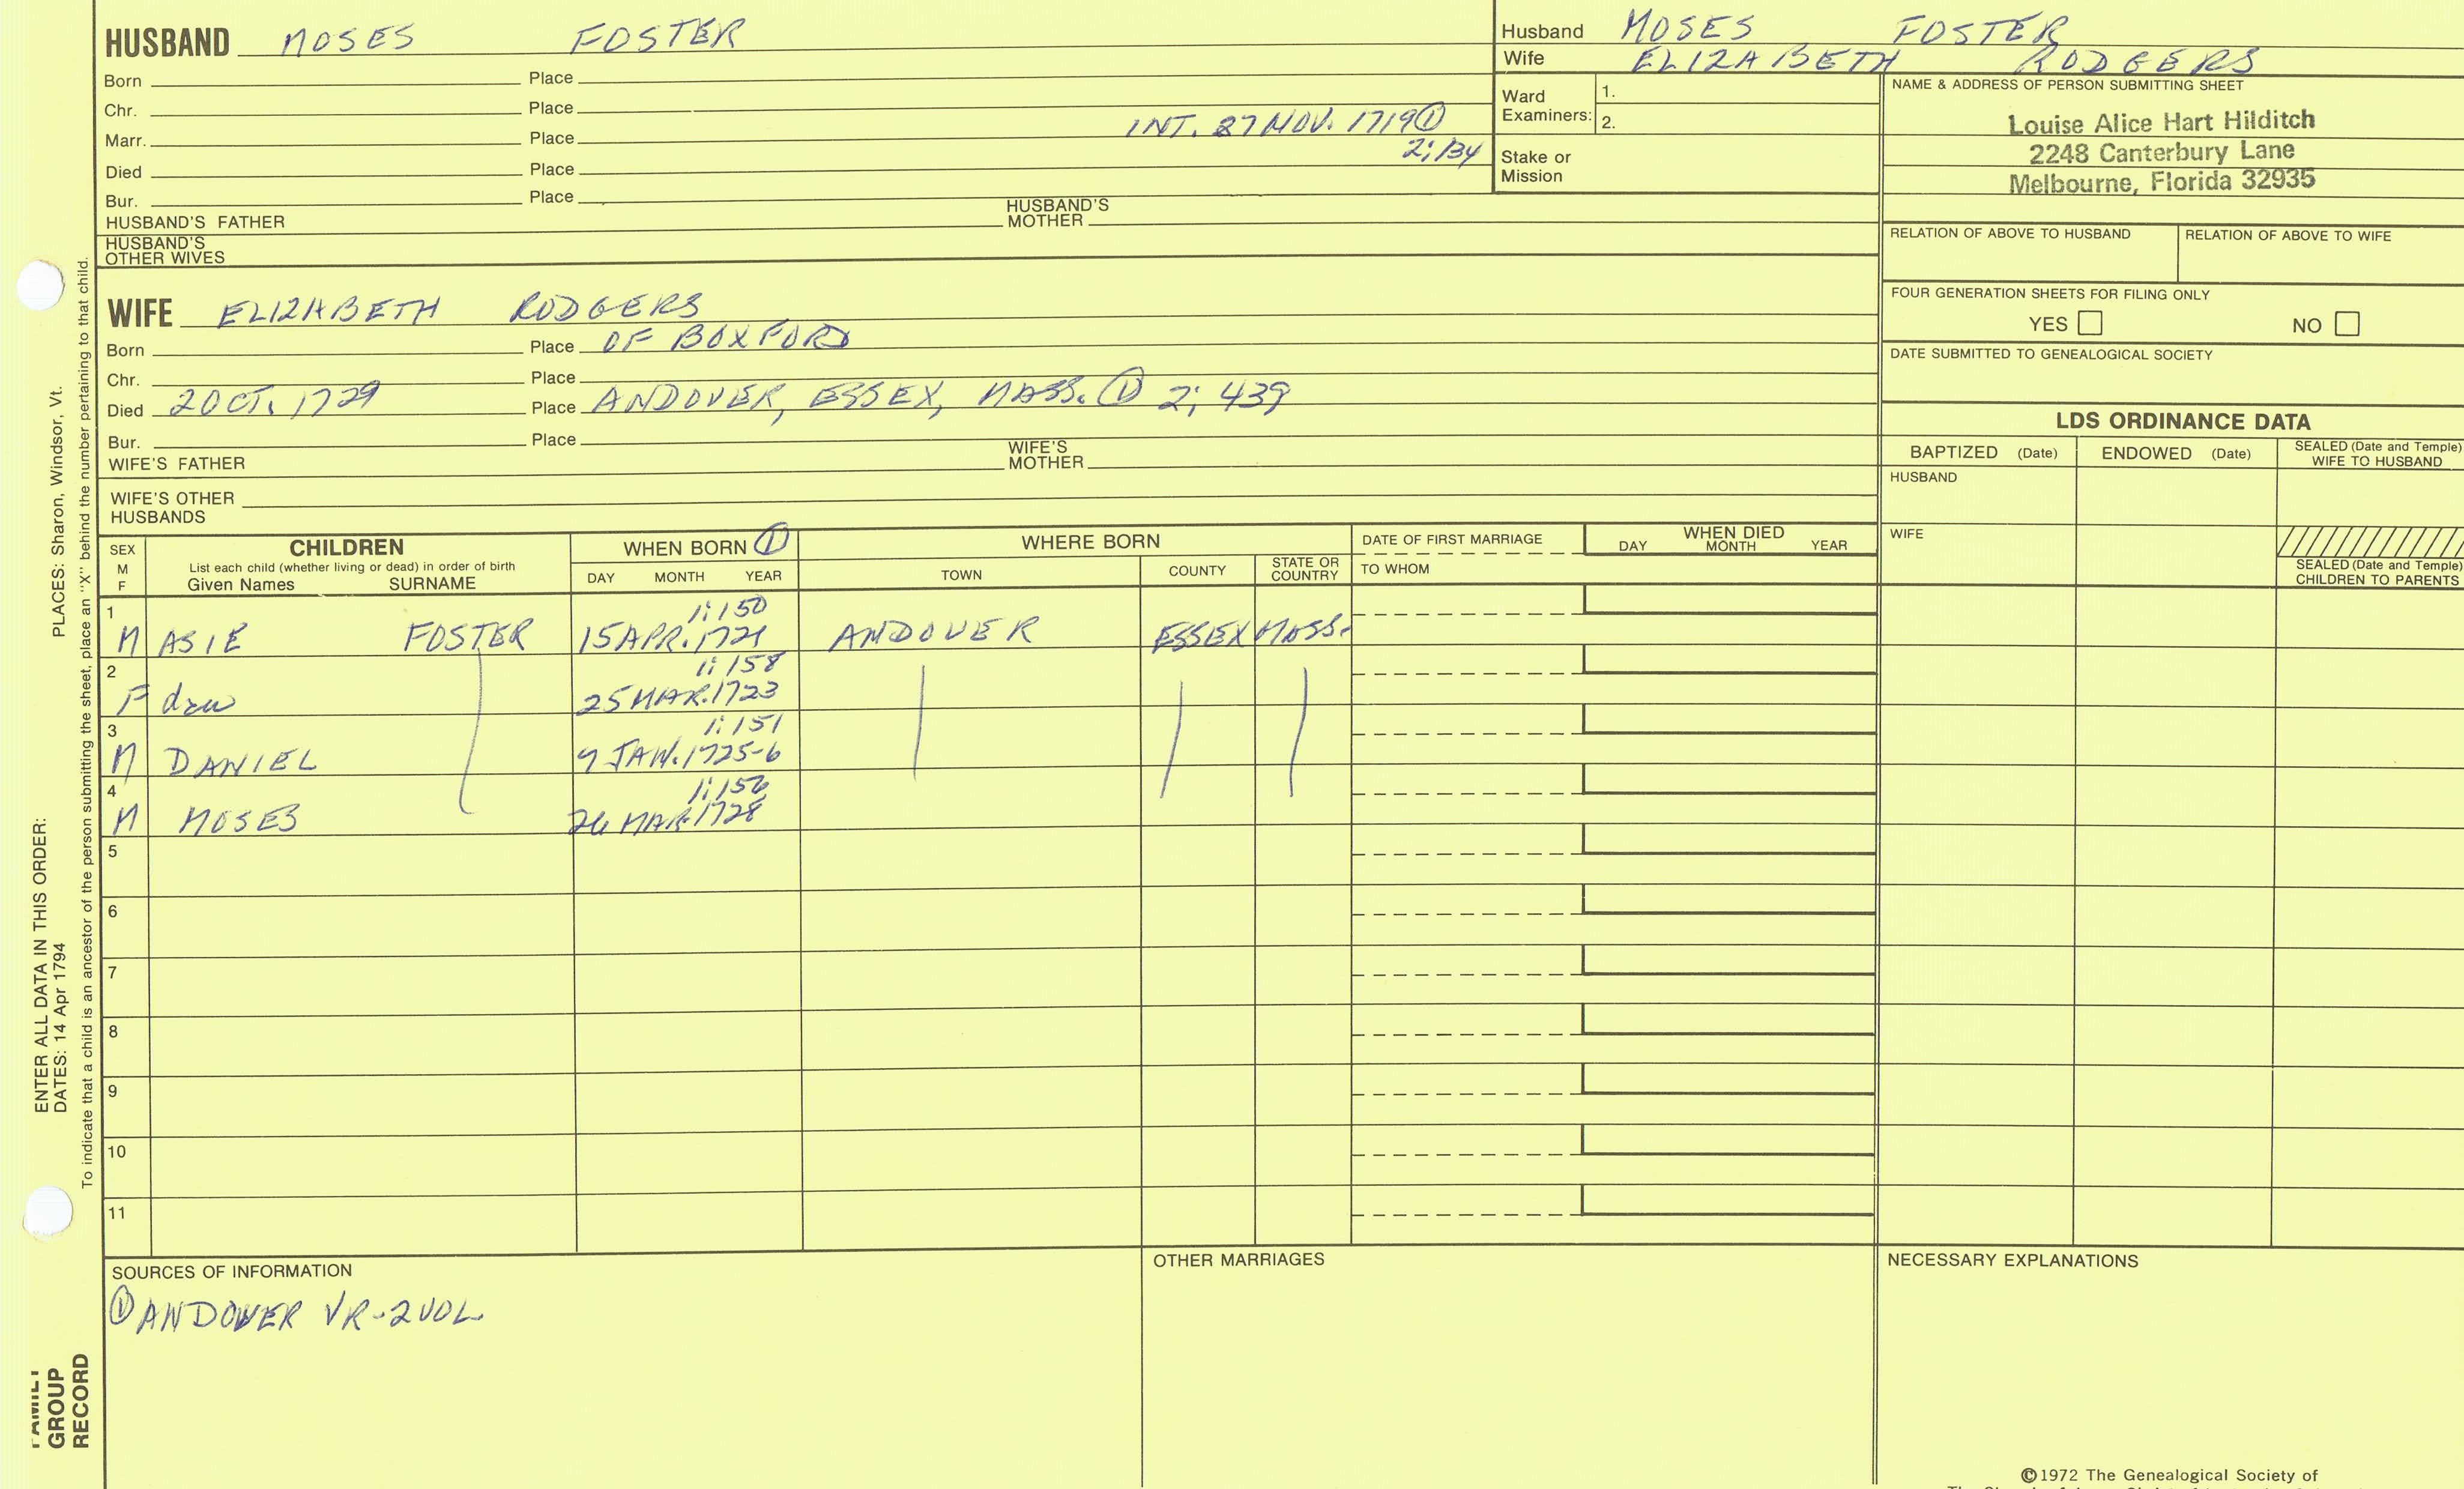 HUSBAND MOSES FOSTER
Born Place
Chr. Place
Marr. Place INT. 27 NOV. 1719 ①
2; 134
Died Place
Bur. Place
HUSBAND'S FATHER HUSBAND'S MOTHER
HUSBAND'S OTHER WIVES
Husband MOSES FOSTER
Wife ELIZABETH RODGERS
Ward Examiners: 1.
2.
Stake or Mission
NAME & ADDRESS OF PERSON SUBMITTING SHEET
Louise Alice Hart Hilditch
2248 Canterbury Lane
Melbourne, Florida 32935
RELATION OF ABOVE TO HUSBAND RELATION OF ABOVE TO WIFE
FOUR GENERATION SHEETS FOR FILING ONLY
YES NO
DATE SUBMITTED TO GENEALOGICAL SOCIETY
WIFE ELIZABETH RODGERS
Born Place OF BOXFORD
Chr. Place
Died 2 OCT. 1729 Place ANDOVER, ESSEX, MASS. ① 2; 439
Bur. Place
WIFE'S FATHER WIFE'S MOTHER
WIFE'S OTHER HUSBANDS
LDS ORDINANCE DATA
BAPTIZED (Date) ENDOWED (Date) SEALED (Date and Temple) WIFE TO HUSBAND
HUSBAND
WIFE
SEALED (Date and Temple) CHILDREN TO PARENTS
SEX M F
CHILDREN
List each child (whether living or dead) in order of birth
Given Names SURNAME
WHEN BORN ①
DAY MONTH YEAR
WHERE BORN
TOWN COUNTY STATE OR COUNTRY
DATE OF FIRST MARRIAGE
TO WHOM
WHEN DIED
DAY MONTH YEAR
1 1:150
M ASIE FOSTER 15 APR. 1721 ANDOVER ESSEX MASS.
2 1:158
F dau 25 MAR. 1723
3 1:151
M DANIEL 7 JAN. 1725-6
4 1:156
M MOSES 26 MAR. 1728
5
6
7
8
9
10
11
SOURCES OF INFORMATION
① ANDOVER VR-2 VOL
OTHER MARRIAGES
NECESSARY EXPLANATIONS
©1972 The Genealogical Society of
ENTER ALL DATA IN THIS ORDER:
DATES: 14 Apr 1794 PLACES: Sharon, Windsor, Vt.
To indicate that a child is an ancestor of the person submitting the sheet, place an "X" behind the number pertaining to that child.
FAMILY
GROUP
RECORD